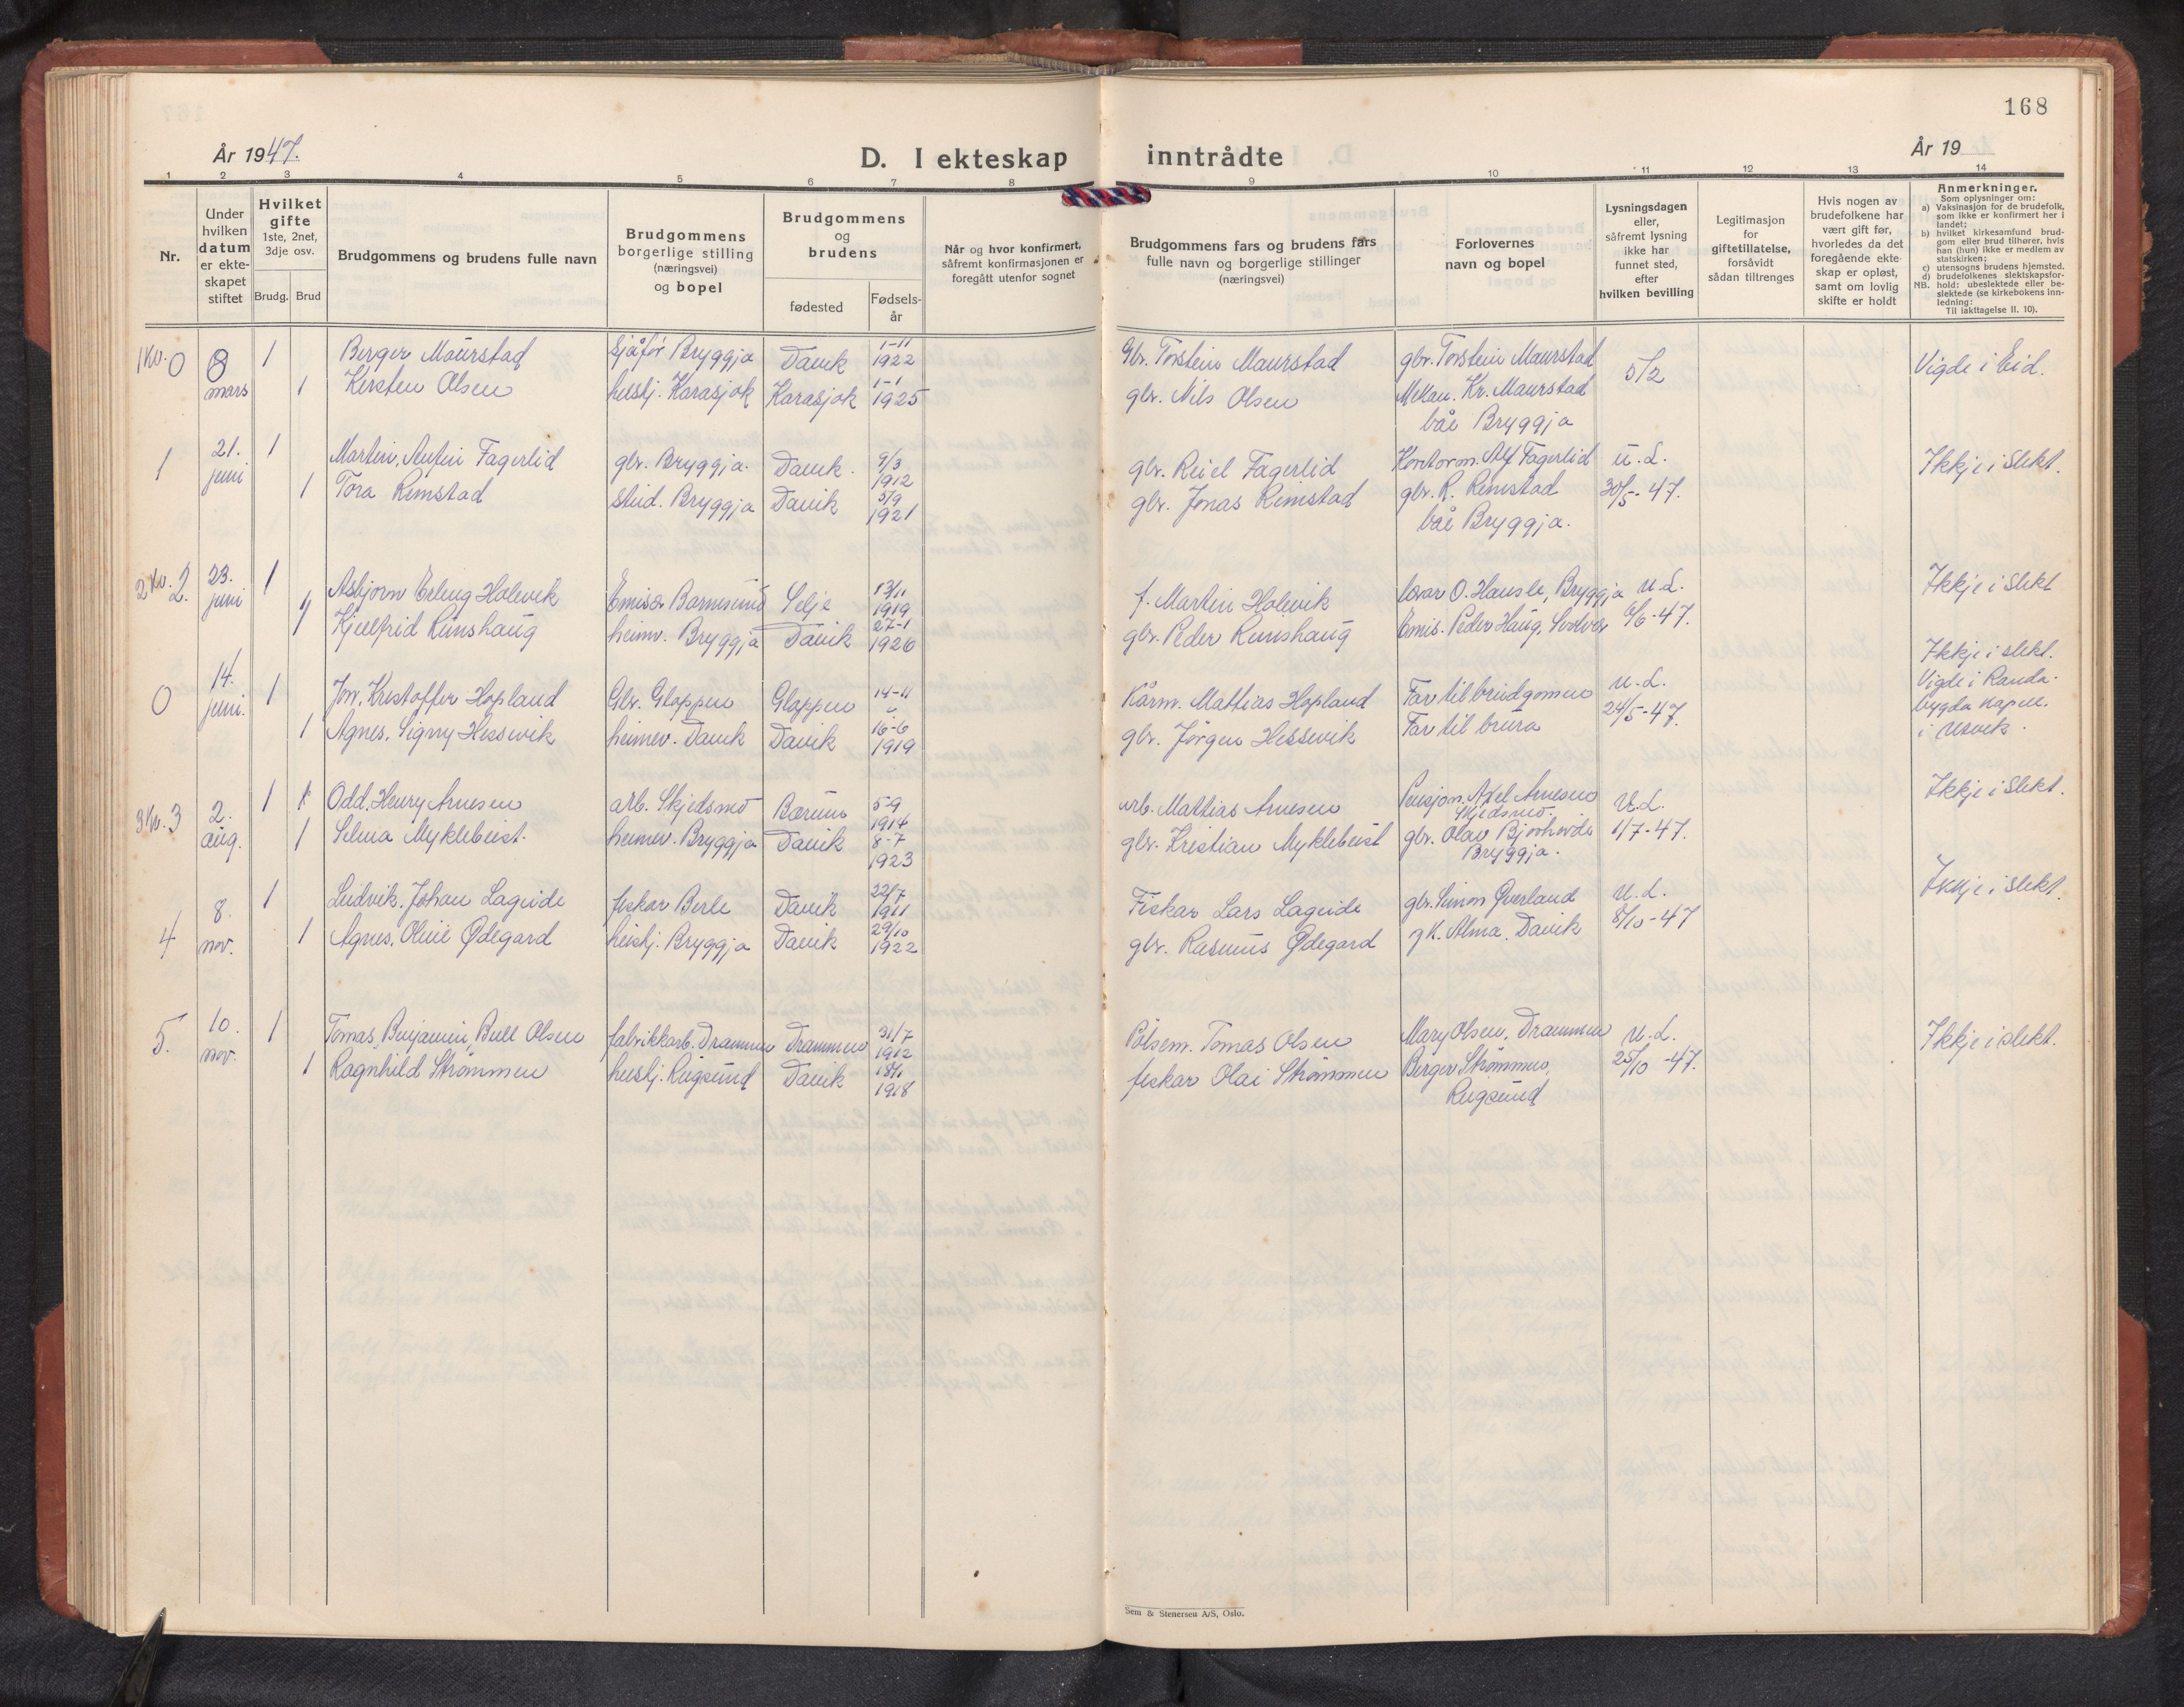 168
År 1947.
D. I ekteskap inntrådte
År 19
1 2 3 4 5 6 7 8 9 10 11 12 13 14
Nr.
Under
hvilken
datum
er ekte-
skapet
stiftet
Hvilket
gifte
1ste, 2net,
3dje osv.
Brudg. Brud
Brudgommens og brudens fulle navn
Brudgommens
borgerlige stilling
(næringsvei)
og bopel
Brudgommens
og
brudens
fødested
Fødsels-
år
Når og hvor konfirmert,
såfremt konfirmasjonen er
foregått utenfor sognet
Brudgommens fars og brudens fars
fulle navn og borgerlige stillinger
(næringsvei)
Forlovernes
navn og bopel
Lysningsdagen
eller,
såfremt lysning
ikke har
funnet sted,
efter
hvilken bevilling
Legitimasjon
for
giftetillatelse,
forsåvidt
sådan tiltrenges
Hvis nogen av
brudefolkene har
vært gift før,
hvorledes da det
foregående ekte-
skap er opløst,
samt om lovlig
skifte er holdt
Anmerkninger.
Som oplysninger om:
a) Vaksinasjon for de brudefolk,
som ikke er konfirmert her i
landet;
b) hvilket kirkesamfund brud-
gom eller brud tilhører, hvis
han (hun) ikke er medlem av
statskirken;
c) utensogns brudens hjemsted.
d) brudefolkenes slektskapsfor-
NB. hold: ubeslektede eller be-
slektede (se kirkebokens inn-
ledning:
Til iakttagelse II. 10).
1 Kv. 0 8 1 Berger Maurstad sjåfør Bryggja Davik 1-11 1922 Gbr. Torstein Maurstad gbr. Torstein Maurstad 5/2 Vigde i Eid.
mars 1 Kirsten Olsen hushj. Karasjok Karasjok 1-1 1925 gbr. Nils Olsen Mekan. Kr. Maurstad
båe Bryggja
1 21. 1 Martin, Antin Fagerlid gbr. Bryggja. Davik. 9/3 1912 gbr. Reiel Fagerlid Kontorm. Alf Fagerlid u.d. Ikkje i slekt.
juni 1 Tora Rimstad stud. Bryggja Davik 5/9 1921 gbr. Jonas Rimstad gbr. R. Rimstad 30/5-47.
båe Bryggja.
2 Kv. 2. 23. 1 Asbjørn Erling Holevik Emisær Barmsund Selje 13/11 1919 f. Martin Holevik O. Hausle, Bryggja u.d. Ikkje i slekt
juni 1 Kjellfrid Runshaug heimv. Bryggja Davik 27-1 1926 gbr. Peder Runshaug Emis. Peder Haug, Svolvær 6/6-47.
0 14. 1 Jon, Kristoffer Hopland Gbr. Gloppen Gloppen 14-11 Kårm. Mattias Hopland Far til brudgomen u.d. Ikkje i slekt.
juni. 1 Agnes, Signy Hessevik heimev. Davik Davik 16-6 1919 gbr. Jørgen Hessevik Far til brura 24/5-47. Vigde i Randa-
bygda kapell.
3 Kv. 3 2. 1 1 Odd, Henry Arnesen arb. Skjedsmo Bærum 5-9 1914 arb. Mattias Arnesen Pensjon. Axel Arnesen u.d. Ikkje i slekt.
Skjedsmo.
aug. 1 Selma Myklebust. heimev. Bryggja Davik 8-7 1923 gbr. Kristian Myklebust gbr. Olav Bjørhovde 1/7-47.
Bryggja.
4 8. 1 Ludvik, Johan Lageide fiskar Berle Davik 22/7 1911 Fiskar Lars Lageide gbr. Simon Øverland u.d. Ikkje i slekt.
nov. 1 Agnes, Olivie Ødegard hushj. Bryggja Davik 29/10 1922 gbr. Rasmus Ødegard gk. Alma. Davik 8/10-47
5. 10. 1 Tomas, Benjamin, Bull Olsen fabrikkarb. Drammen Drammen 31/7 1912 Pølsem. Tomas Olsen Mary Olsen, Drammen u.d. Ikkje i slekt.
nov. 1 Ragnhild Strømmen hushj. Rugsund Davik 18/1 1918 fiskar Olai Strømmen Berger Strømmen, 25/10-47.
Rugsund
Sem & Stenersen A/S, Oslo.